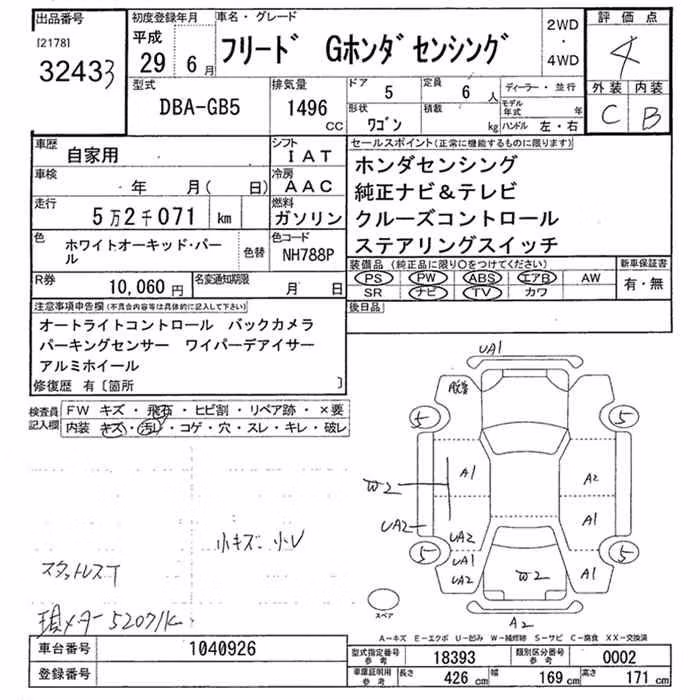 出品番号
[2178]
32433
初度登録年月
平成
29 6月
車名・グレード
フリード Gホンダセンシング
2WD
・
4WD
評価点
4
外装 内装
C B
型式
DBA-GB5
排気量
1496
CC
ドア
5
定員
6人
ディーラー・並行
形状
ワゴン
積載
kg
モデル年式 年
ハンドル 左・右
車歴
自家用
シフト
IAT
車検
年 月( 日)
冷房
AAC
走行
5万2千071 km
燃料
ガソリン
色
ホワイトオーキッド・パール
色替
色コード
NH788P
R券
10,060円
名変通知期限
月 日
セールスポイント(正常に機能するものに限ります)
ホンダセンシング
純正ナビ&テレビ
クルーズコントロール
ステアリングスイッチ
装備品(純正品に限り○をつけてください)
PS PW ABS エアB AW
SR ナビ TV カワ
新車保証書
有・無
後日品
注意事項申告欄(不具合内容等は具体的に記入して下さい)
オートライトコントロール バックカメラ
パーキングセンサー ワイパーデアイサー
アルミホイール
修復歴 有〔箇所 〕
検査員記入欄
FW キズ・飛石・ヒビ割・リペア跡・×要
内装 キズ・汚レ・コゲ・穴・スレ・キレ・破レ
小キズ 小U
スタットレスT
現メーター52071K
UA1
5 5
A1 A2
W2
A1
UA2 UA2
5 5
UA1
UA2
W2 A1
スペア
A2
A-キズ E-エクボ U-凹み W-補修跡 S-サビ C-腐食 XX-交換済
車台番号
1040926
登録番号
型式指定番号
参考
18393
類別区分番号
参考
0002
車庫証明用
参考
長さ
426 cm
幅
169 cm
高さ
171 cm